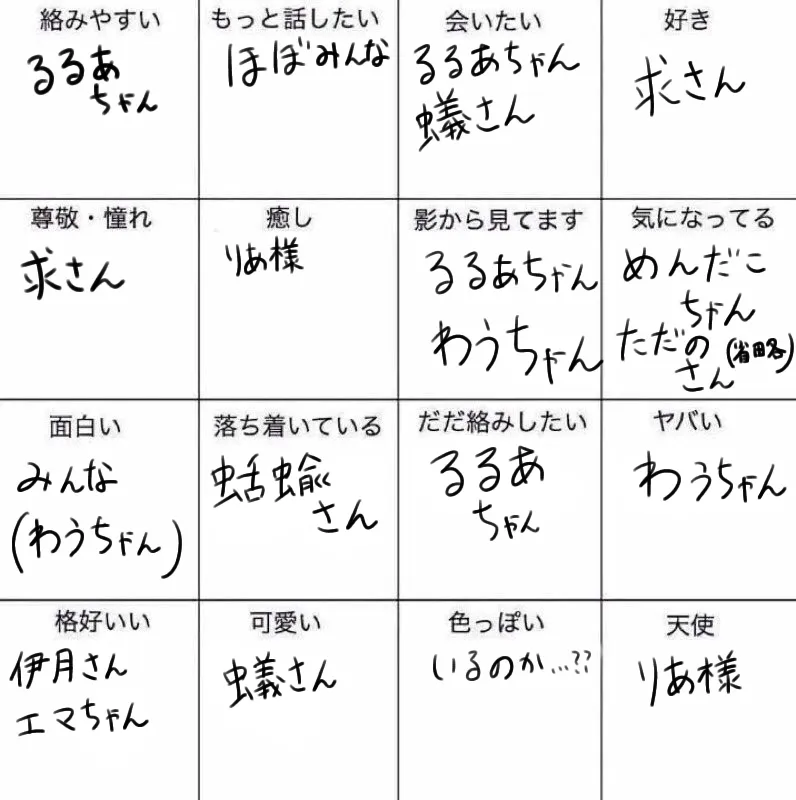 絡みやすい
るるあ
ちゃん
もっと話したい
ほぼみんな
会いたい
るるあちゃん
蟻さん
好き
求さん
尊敬・憧れ
求さん
癒し
りあ様
影から見てます
るるあちゃん
わうちゃん
気になってる
めんだこ
ちゃん
ただの
(省略)
さん
面白い
みんな
(わうちゃん)
落ち着いている
蛞蝓
さん
だだ絡みしたい
るるあ
ちゃん
ヤバい
わうちゃん
格好いい
伊月さん
エマちゃん
可愛い
蟻さん
色っぽい
いるのか…??
天使
りあ様